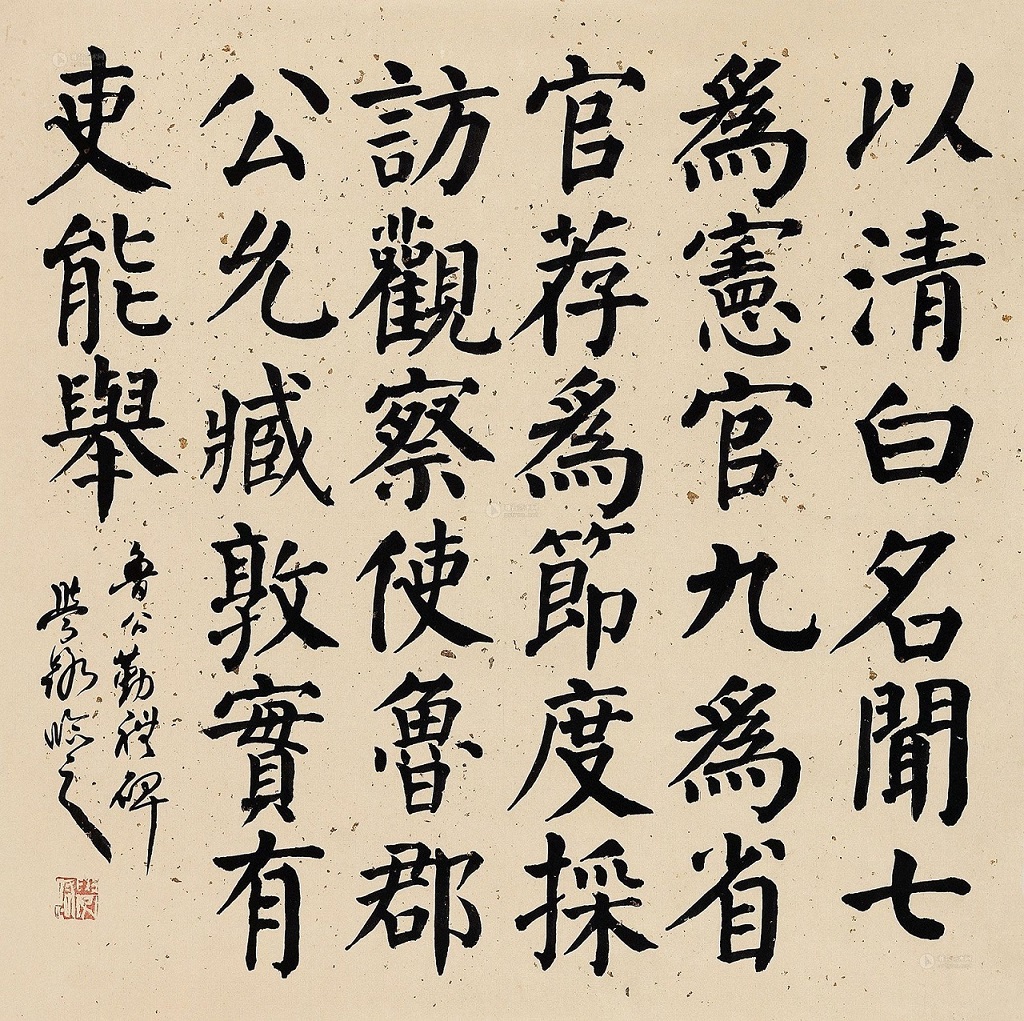 以清白名聞七
為憲官九為省
官荐為節度採
訪觀察使魯郡
公允臧敦實有
吏能舉
魯公勤禮碑
臨之